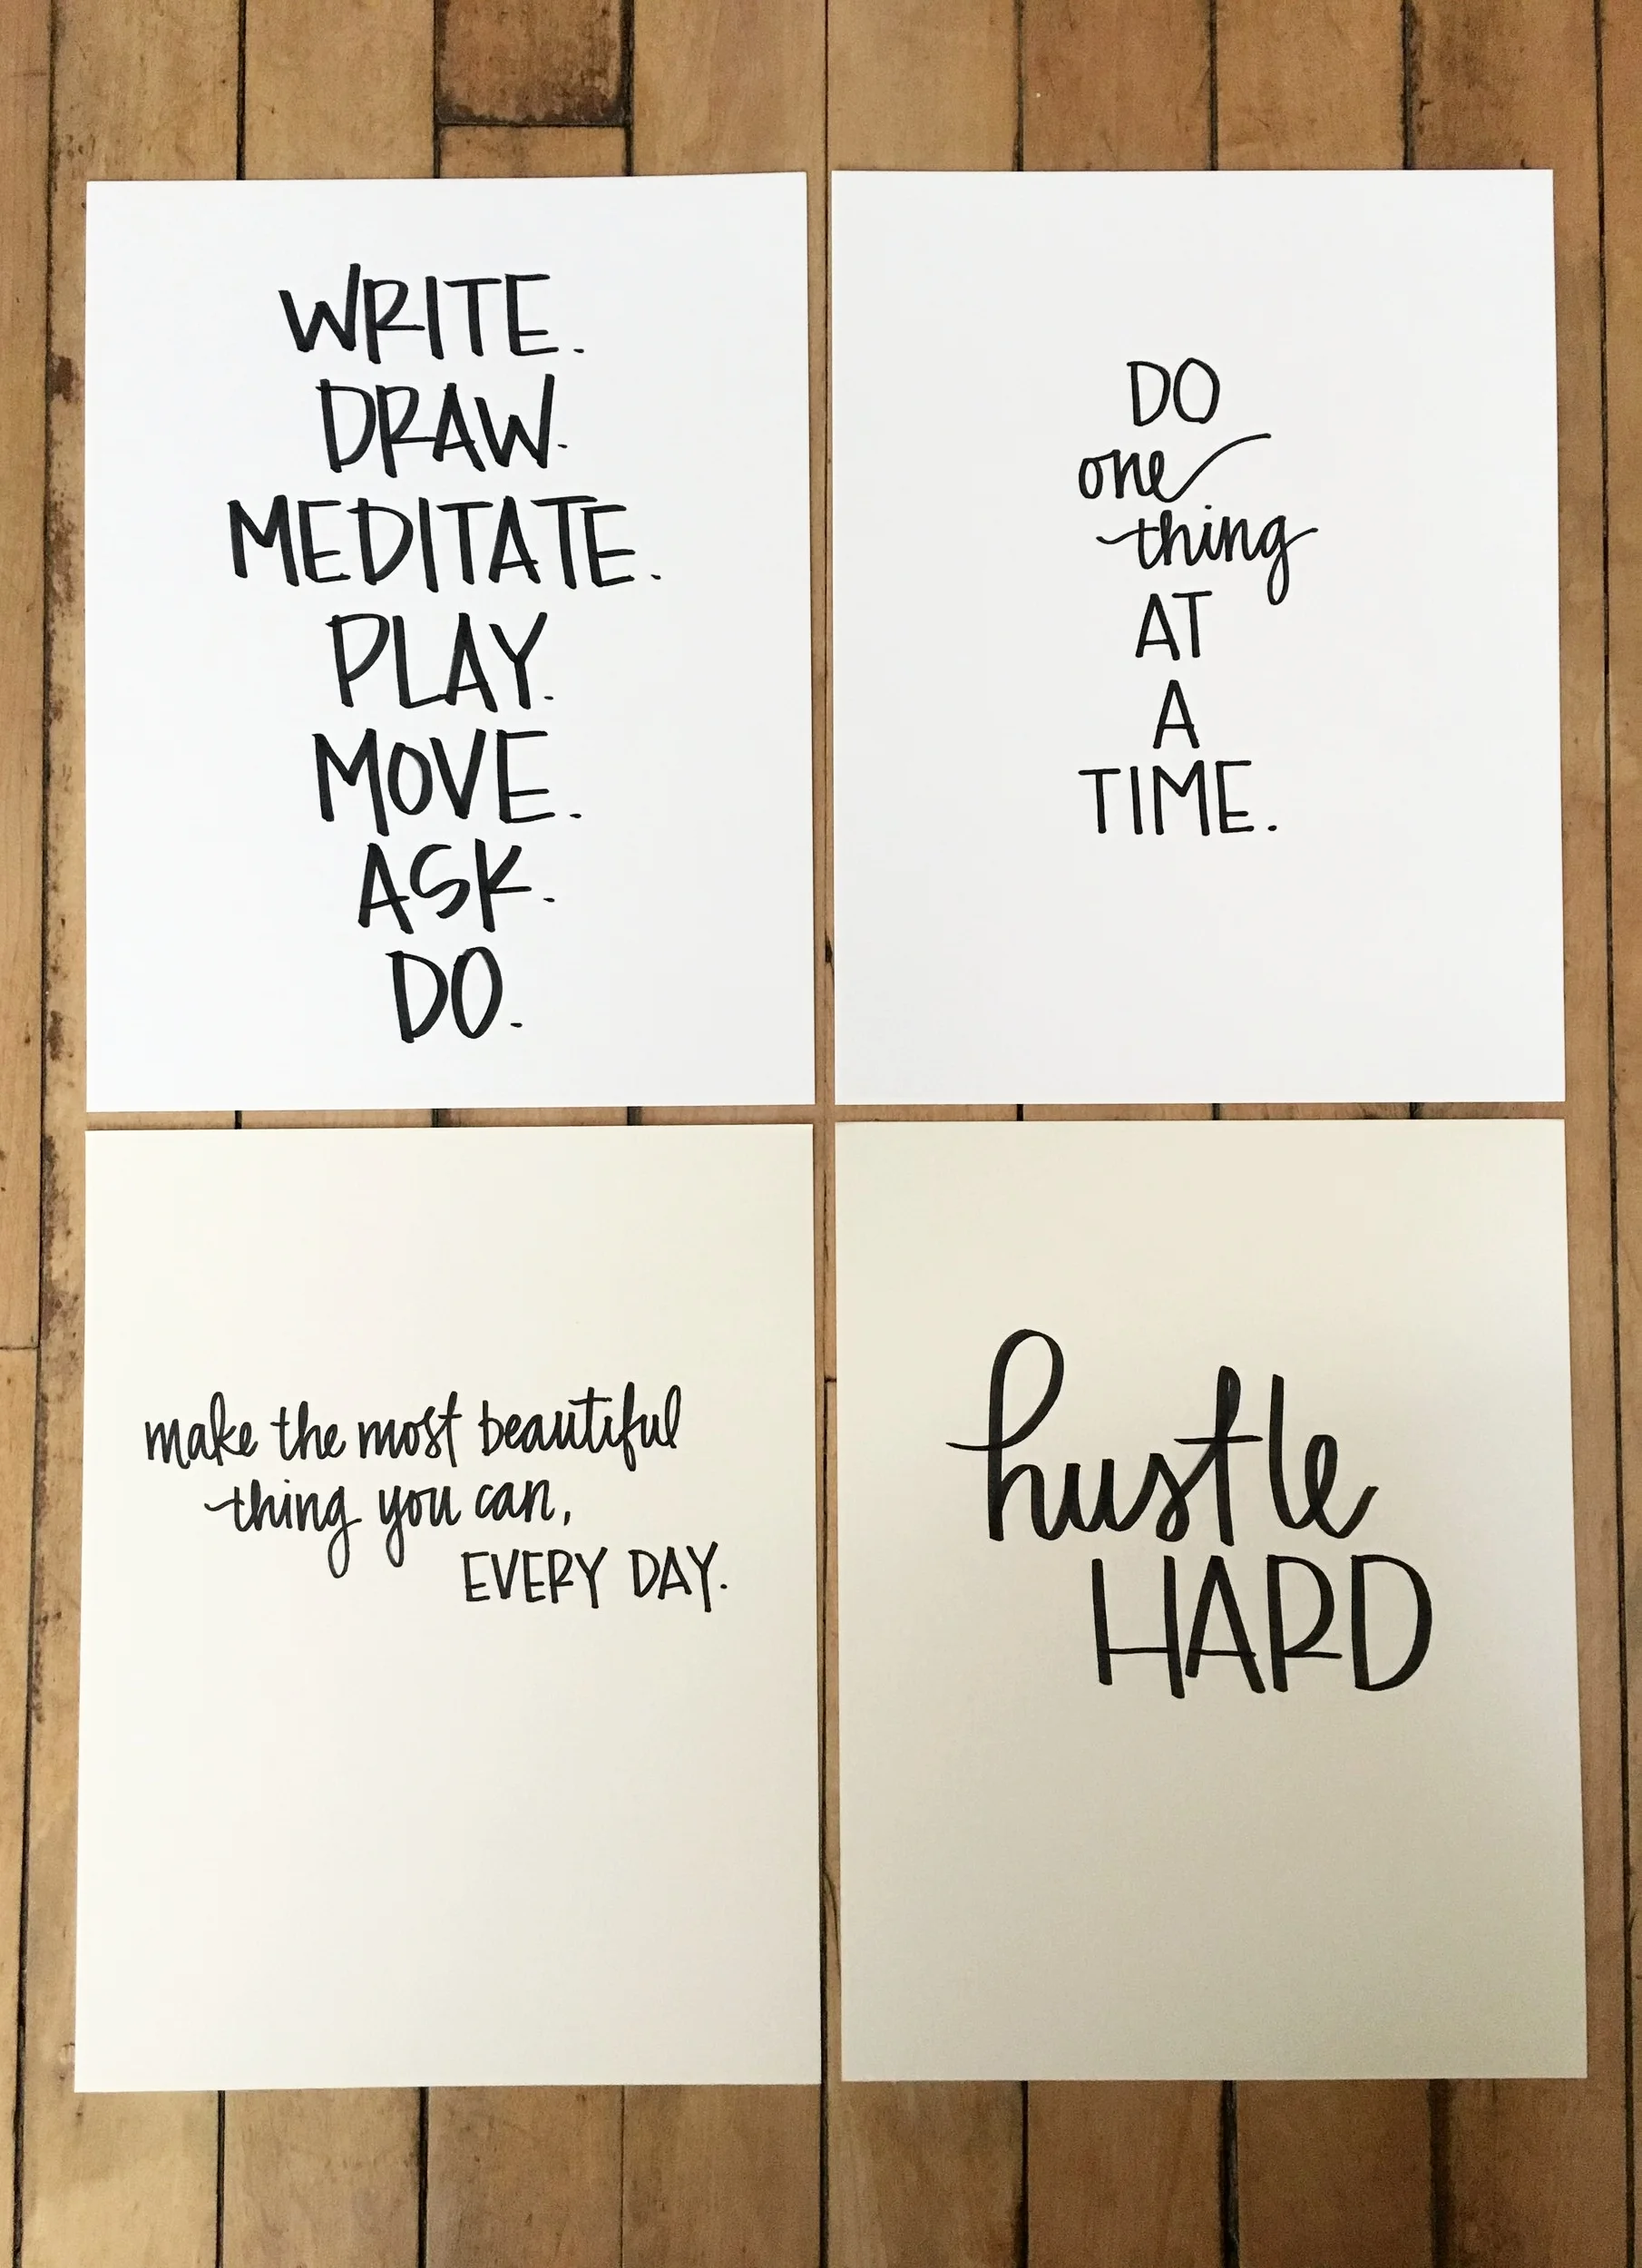 WRITE.
DRAW.
MEDITATE.
PLAY.
MOVE.
ASK.
DO.
DO
one
thing
AT
A
TIME.
make the most beautiful
thing you can,
EVERY DAY.
hustle
HARD